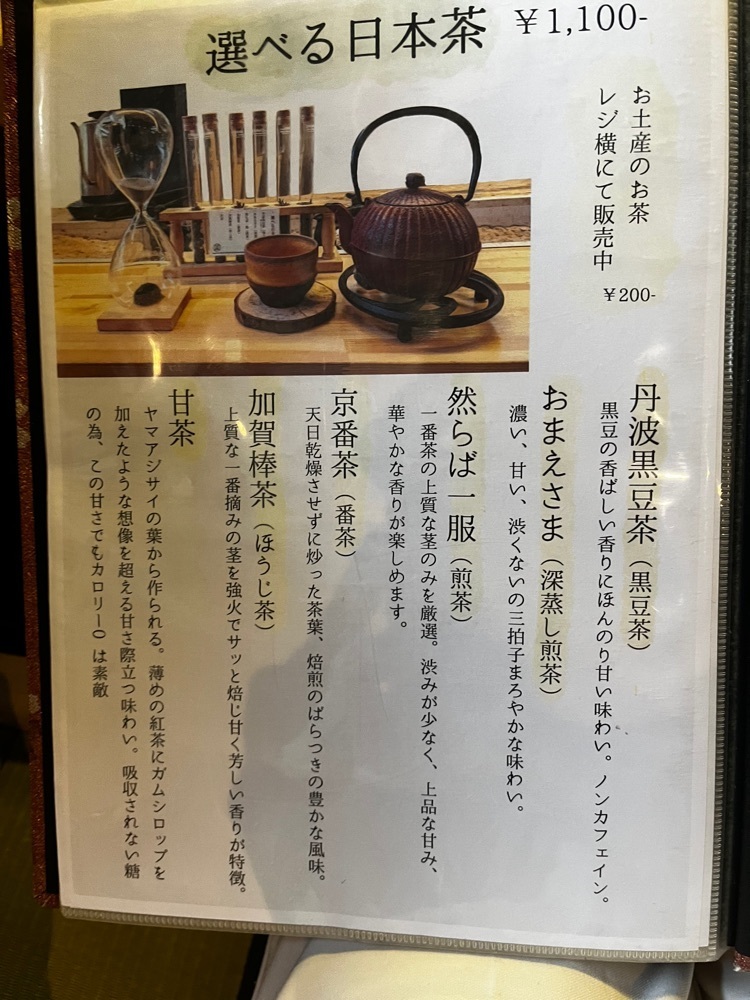 選べる日本茶 ￥1,100-
お土産のお茶
レジ横にて販売中
￥200-
丹波黒豆茶（黒豆茶）
黒豆の香ばしい香りにほんのり甘い味わい。ノンカフェイン。
おまえさま（深蒸し煎茶）
濃い、甘い、渋くないの三拍子まろやかな味わい。
然らば一服（煎茶）
一番茶の上質な茎のみを厳選。渋みが少なく、上品な甘み、
華やかな香りが楽しめます。
京番茶（番茶）
天日乾燥させずに炒った茶葉、焙煎のばらつきの豊かな風味。
加賀棒茶（ほうじ茶）
上質な一番摘みの茎を強火でサッと焙じ甘く芳しい香りが特徴。
甘茶
ヤマアジサイの葉から作られる。薄めの紅茶にガムシロップを
加えたような想像を超える甘さ際立つ味わい。吸収されない糖
の為、この甘さでもカロリー0は素敵